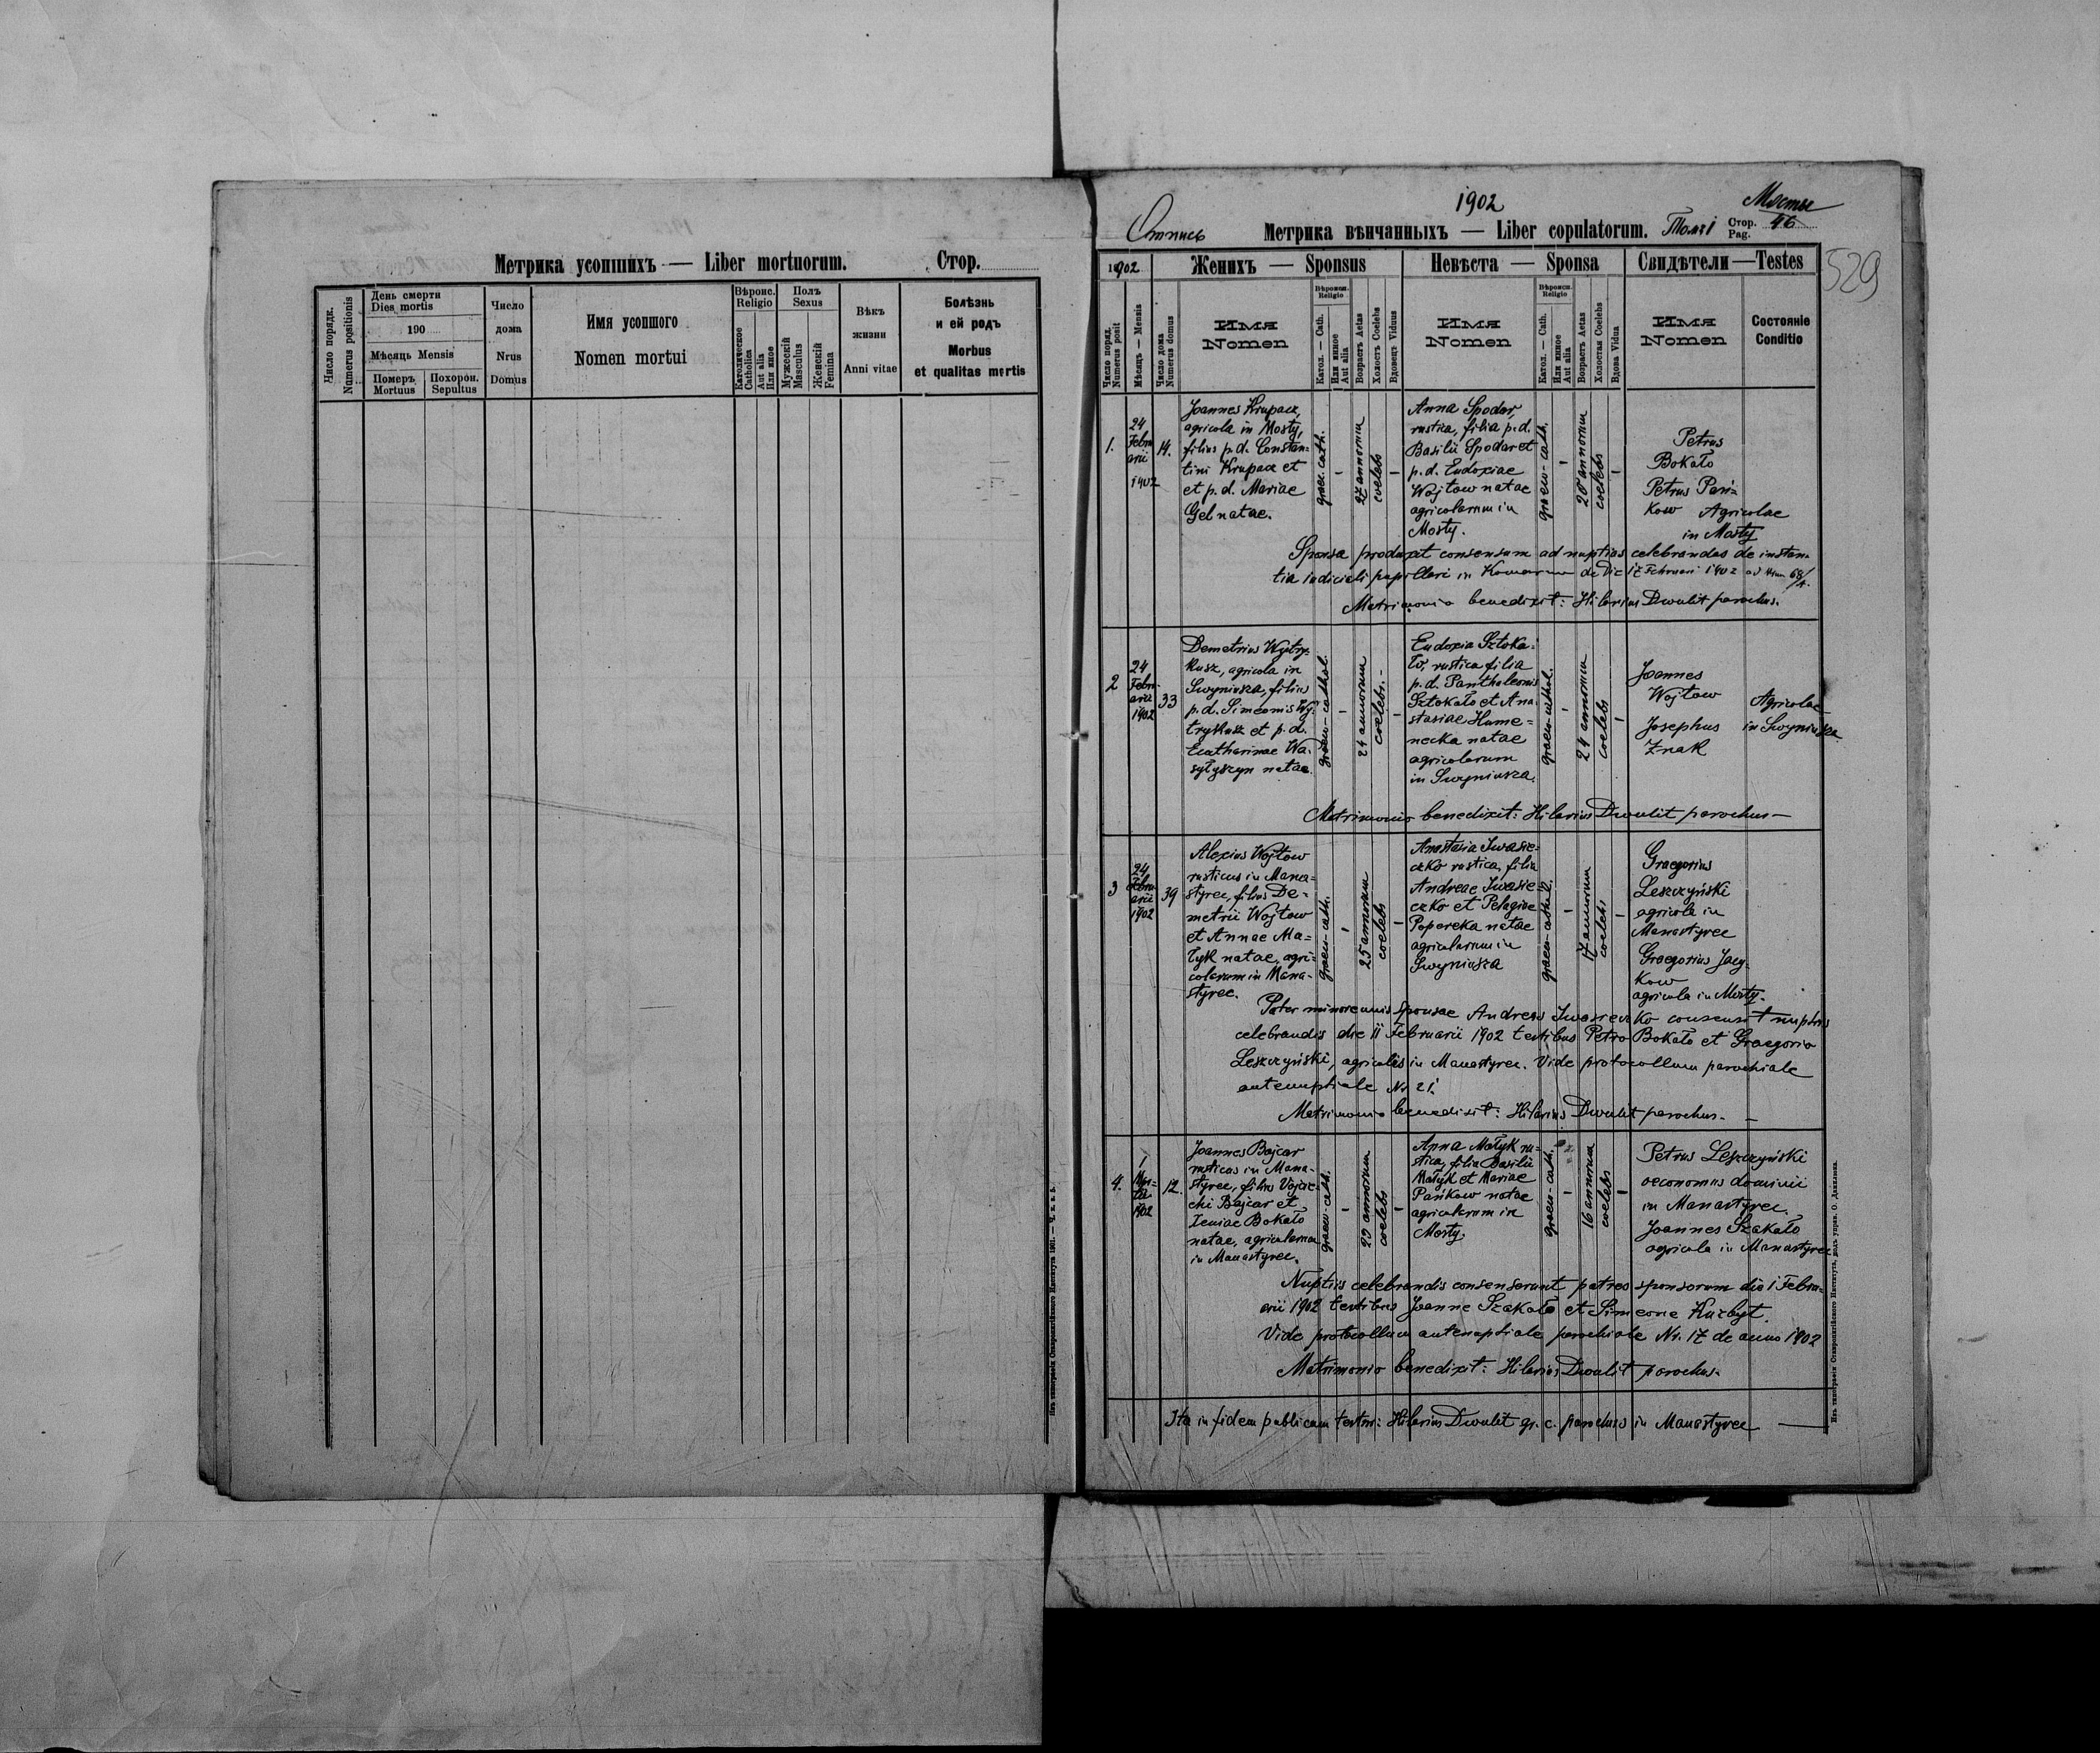 Метрика усопшихъ — Liber mortuorum. Стор.
Число порядк.
Numerus positionis
День смерти
Dies mortis
190
Мѣсяць Mensis
Померъ
Mortuus
Похорон.
Sepultus
Число
дома
Nrus
Domus
Имя усопшого
Nomen mortui
Вѣроис.
Religio
Католическое
Catholica
Aut alia
Или иное
Полъ
Sexus
Мужескій
Masculus
Женскій
Femina
Вѣкъ
жизни
Anni vitae
Болѣзнь
и ей родъ
Morbus
et qualitas mortis
1902
Мосты
Метрика вѣнчанныхъ — Liber copulatorum. Томъ I Стор. 46
Pag.
529
1902
Женихъ — Sponsus
Невѣста — Sponsa
Свидѣтели — Testes
Число поряд.
Numerus posit
Мѣсяць — Mensis
Число дома
Numerus domus
Имя
Nomen
Вѣроисп.
Religio
Катол. — Cath.
Или иное
Aut alia
Возрастъ Aetas
Холостъ Coelebs
Вдовецъ Viduus
Имя
Nomen
Вѣроисп.
Religio
Катол. — Cath.
Или иное
Aut alia
Возрастъ Aetas
Холостая Coelebs
Вдова Vidua
Имя
Nomen
Состояніе
Conditio
1.
24
Febru
arii
1902
14.
Joannes Krupacz,
agricola in Mosty,
filius p.d. Constan=
tini Krupacz et
et p.d. Mariae
Gel natae.
graec. cath.
27 annorum
coelebs
Anna Spodar,
rustica, filia p.d.
Basilii Spodar et
p.d. Eudoxiae
Wojtow natae
agricolarum in
Mosty.
graeco-cath.
20 annorum
coelebs
Petrus
Bokało
Petrus Pań=
kow Agricolae
in Mosty
Sponsa produxit consensum ad nuptias celebrandas de instan=
tia iudiciali pupillari in Komarno de die 17 Februarii 1902 ad Nrum 68/4.
Matrimonio benedixit: Hilarius Dwulit parochus.
2
24
Febru-
arii
1902
33
Demetrius Wytry-
kusz, agricola in
Swyniusza, filius
p.d. Simeonis Wy-
trykusz et p.d.
Ecatharinae Wa-
sylyszyn natae.
graeco-cathol.
24 annorum
coelebs. -
Eudoxia Sztoka-
ło, rustica filia
p.d. Panthaleonis
Sztokało et Ana-
stasiae Hume=
necka natae
agricolarum
in Swyniusza.
graeco-cathol.
24 annorum
coelebs
Joannes
Wojtow
Josephus
Znak
Agricolae
in Swyniusza
Matrimonio benedixit: Hilarius Dwulit parochus —
3
24
Febru
arii
1902
39
Alexius Wojtow
rusticus in Mana=
styrec, filius De=
metrii Wojtow
et Annae Ma=
łyk natae, agri=
colarum in Mana-
styrec.
graeco-cath.
25 annorum
coelebs
Anastasia Iwasie=
czko rustica, filia
Andreae Iwasie
czko et Pelagiae
Popereka natae
agricolarum in
Swyniusza
17 annorum
coelebs
Graegorius
Leszczyński
agricola in
Manastyrec
Graegorius Jacy-
kow
agricola in Mosty.
Pater minorennis sponsae Andreas Iwasieczko consensit nuptiis
celebrandis die 11 Februarii 1902 testibus Petro Bokało et Graegorio
Leszczyński, agricolis in Manastyrec. Vide protocollum parochiale
antenuptiale Nr 21.
Matrimonio benedixit: Hilarius Dwulit parochus. —
4.
1
Mar=
tii
1902
12.
Joannes Bajcar
rusticus in Mana-
styrec, filius Vojcie-
chi Bajcar et
Xeniae Bokało
natae, agricolarum
in Manastyrec.
graeco-cath.
29 annorum
coelebs
Anna Małyk ru=
stica, filia Basilii
Małyk et Mariae
Pańkow natae
agricolarum in
Mosty.
graeco-cath.
16 annorum
coelebs
Petrus Leszczyński
oeconomus dominii
in Manastyrec.
Joannes Szakało
agricola in Manastyrec
Nuptiis celebrandis consenserunt patres sponsorum die 1 Febru=
arii 1902 testibus Joanne Szakało et Simeone Kuzbyt.
Vide protocollum antenuptiale parochiale Nr. 17 de anno 1902
Matrimonio benedixit: Hilarius Dwulit parochus.
Ita in fidem publicam testor: Hilarius Dwulit gr. c. parochus in Manastyrec